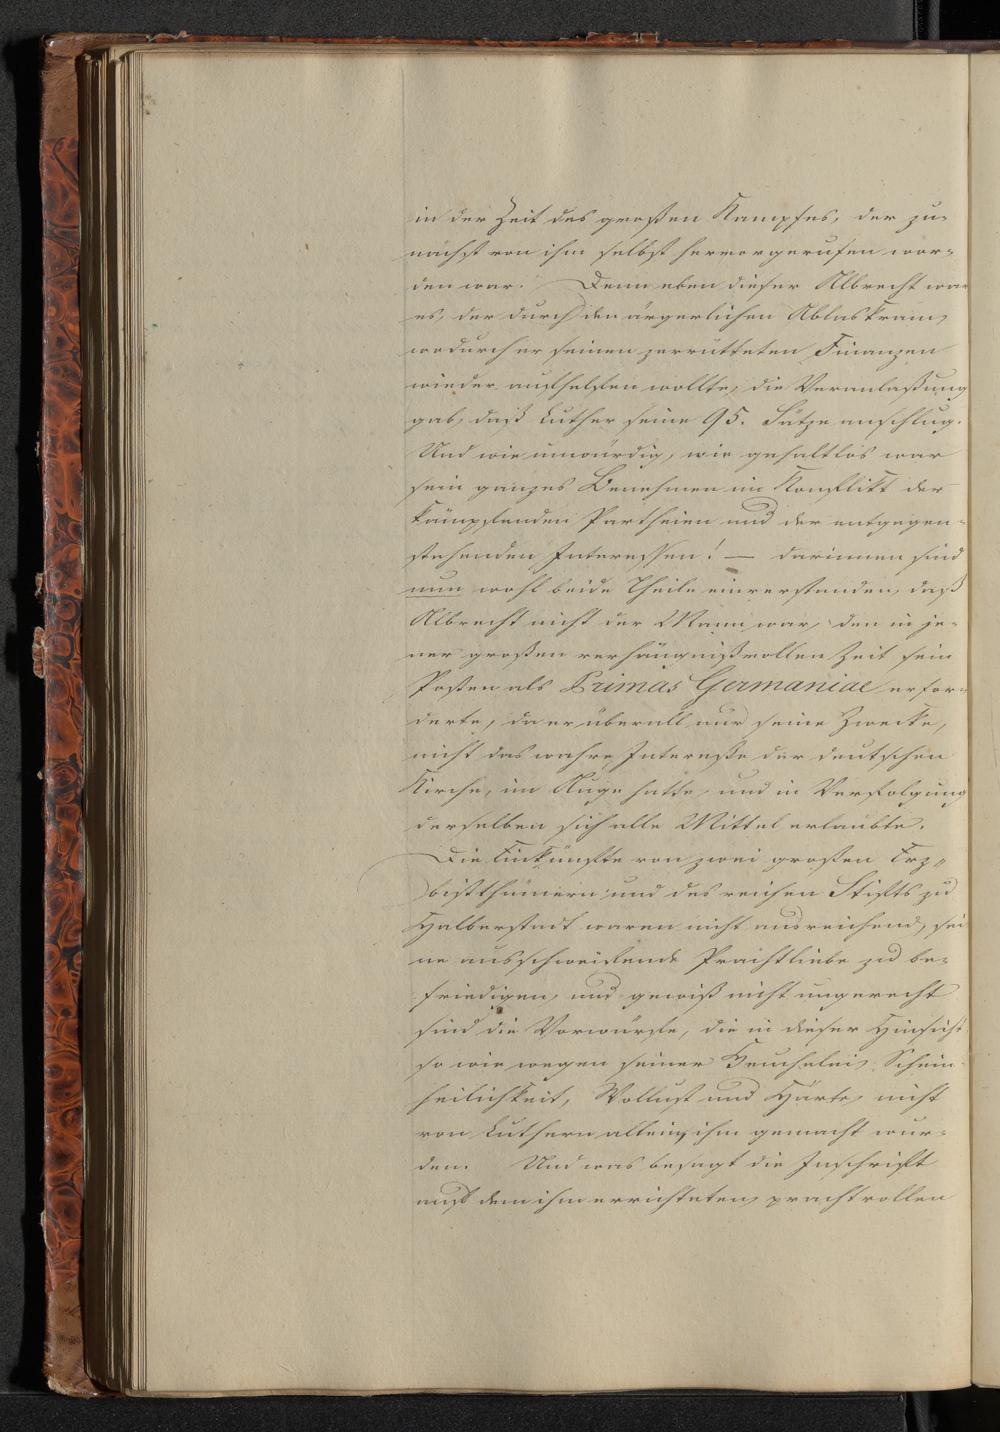 in der Zeit des großen Kampfes, der zu-
nächst von ihm selbst hervorgerufen wor-
den war. Denn eben dieser Albrecht war
es, der durch den ärgerlichen Ablaskram,
wodurch er seinen zerrütteten Finanzen
wieder aufhelfen wollte, die Veranlaßung
gab, daß Luther seine 95. Sätze anschlug.
Und wie unwürdig, wie gehaltlos war
sein ganzes Benehmen im Konflikt der
kämpfenden Partheien und der entgegen-
stehenden Interessen! — darinnen sind
nun wohl beide Theile einverstanden, daß
Albrecht nicht der Mann war, den in je-
ner großen verhängnißvollen Zeit sein
Posten als Primas Germaniae erfor-
derte, da er überall nur seine Zwecke,
nicht das wahre Interesse der deutschen
Kirche, im Auge hatte, und in Verfolgung
derselben sich alle Mittel erlaubte.
Die Einkünfte von zwei großen Erz-
bistthümern und des reichen Stifts zu
Halberstadt waren nicht ausreichend, sei
ne ausschweifende Prachtliebe zu be-
friedigen, und gewiß nicht ungerecht
sind die Vorwürfe, die in dieser Hinsicht
so wie wegen seiner Heuchelei, Schein-
heilichkeit, Wollust und Härte, nicht
von Luthern allein, ihm gemacht wur-
den. Und was besagt die Inschrift
auf dem ihm errichteten, prachtvollen